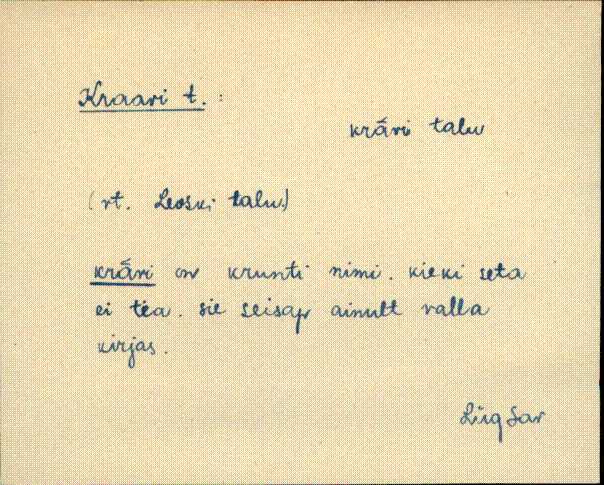 Kraari t. :
krāri talu
(vt. Leoski talu)
krāri on krunti nimi. kieki seta
ei tèa. sie seisap ainult valla
kirjas.
Lüg Sar